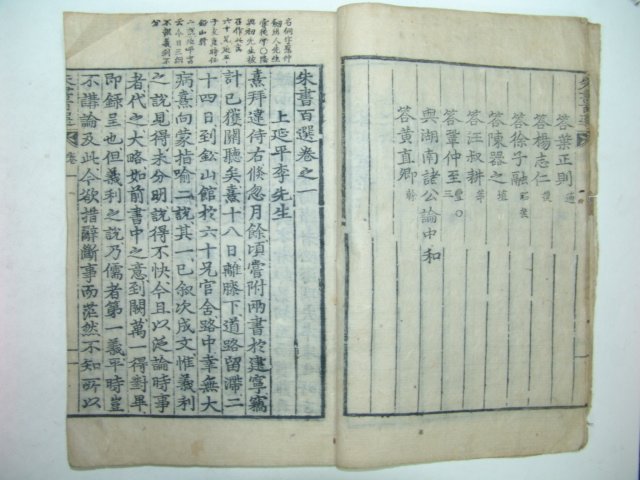 答葉正則適
答楊志仁復
答徐子融昭然
答陳器之埴
答汪叔耕莘
答鞏仲至豐
與湖南諸公論中和
答黃直卿榦
朱書百選卷之一
上延平李先生
熹拜違侍右倏忽月餘頃嘗附兩書於建寧竊
計已獲關聽矣熹十八日離膝下道路留滯二
十四日到鉛山館於六十兄官舍路中幸無大
病熹向蒙指喻二說其一已叙次成文惟義利
之說見得未分明說得不快今且以泛論時事
者代之大略如前書中之意到闕萬一得對畢
即錄呈也但義利之說乃儒者第一義平時豈
不講論及此今欲措辭斷事而茫然不知所以